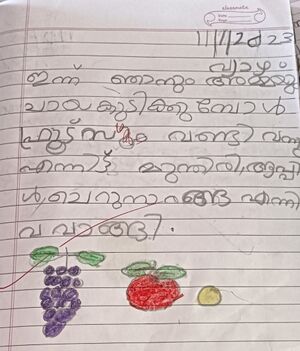 classmate
Date
Page
11/11/2023
വ്യാഴം
ഇന്ന് ഞാനും അമ്മയും
ചായ കുടിക്കുമ്പോൾ
ഫ്രൂട്ട്സ് വണ്ടി വന്നു
എന്നിട്ട് മുന്തിരി, ആപ്പി
ൾ, ചെറുനാരങ്ങ എന്നി
വ വാങ്ങി.